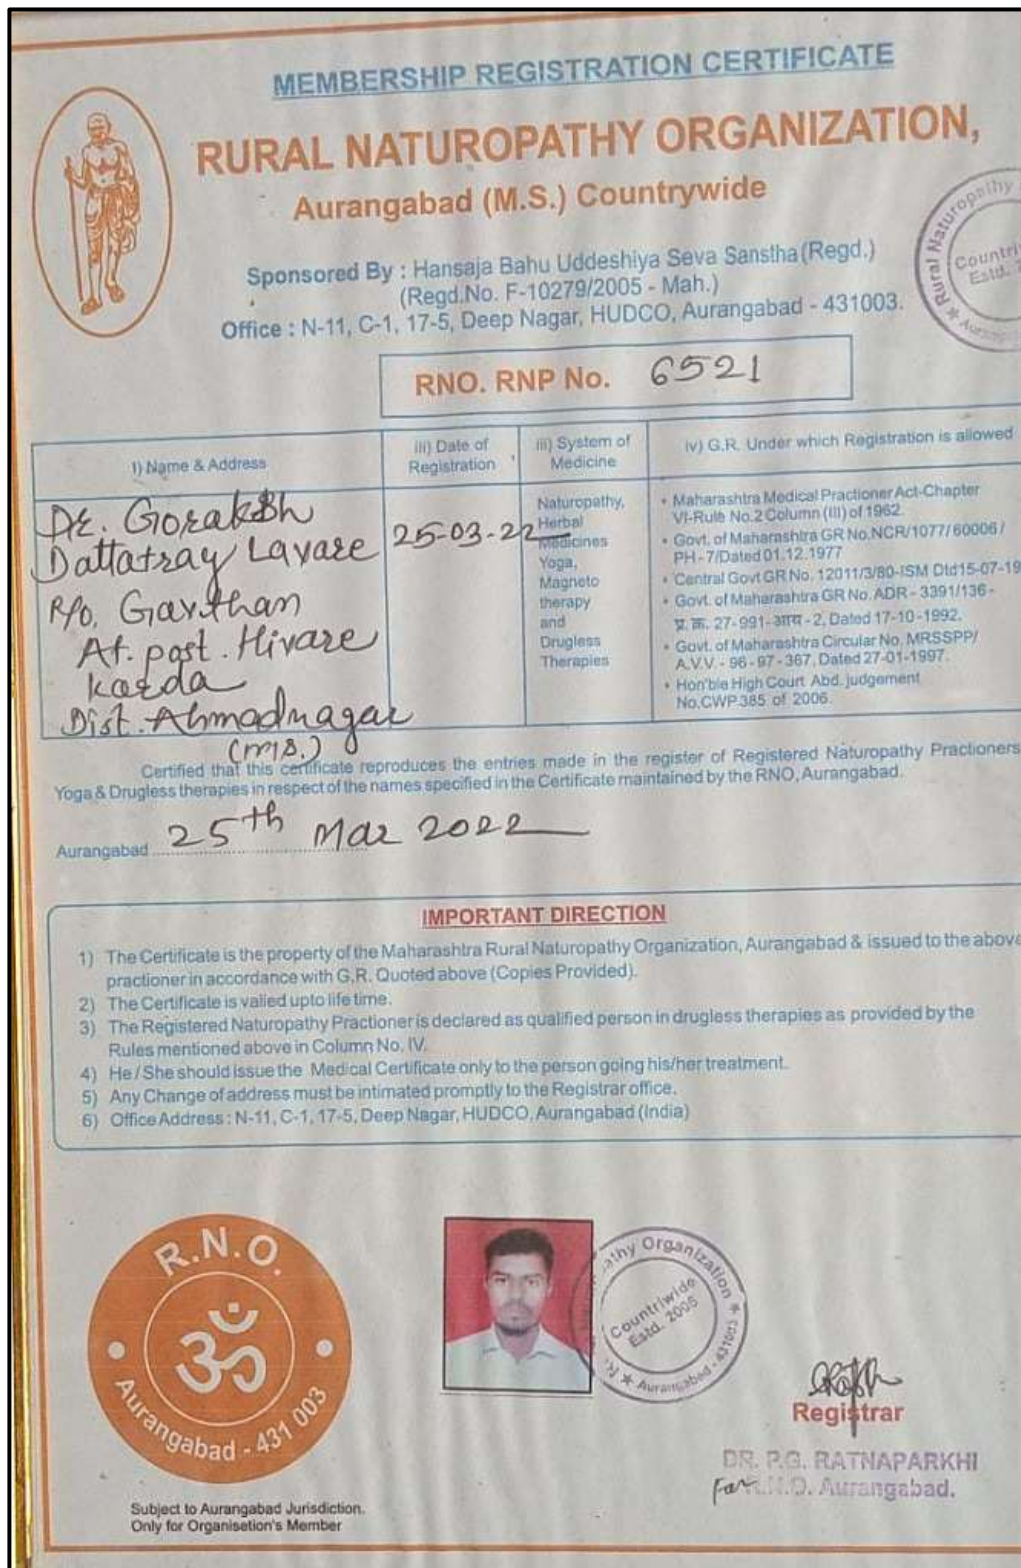 MEMBERSHIP REGISTRATION CERTIFICATE
RURAL NATUROPATHY ORGANIZATION,
Aurangabad (M.S.) Countrywide
Sponsored By : Hansaja Bahu Uddeshiya Seva Sanstha (Regd.)
(Regd.No. F-10279/2005 - Mah.)
Office : N-11, C-1, 17-5, Deep Nagar, HUDCO, Aurangabad - 431003.
Rural Naturopathy
Countri
Estd.
RNO. RNP No. 6521
I) Name & Address
iii) Date of
Registration
iii) System of
Medicine
iv) G.R. Under which Registration is allowed
Dr. Goraksh
Dattatray Lavare
R/o. Gavthan
At. post. Hivare
Karda
Dist. Ahmadnagar
(M.S.)
25-03-22
Naturopathy,
Herbal
Medicines
Yoga,
Magneto
therapy
and
Drugless
Therapies
• Maharashtra Medical Practioner Act-Chapter
VI-Rule No.2 Column (III) of 1962.
• Govt. of Maharashtra GR No.NCR/1077/60006/
PH-7/Dated 01.12.1977
• Central Govt GR No. 12011/3/80-ISM Dtd15-07-19
• Govt. of Maharashtra GR No. ADR - 3391/136 -
प्र. क्र. 27-991-आय - 2, Dated 17-10-1992.
• Govt. of Maharashtra Circular No. MRSSPP/
A.V.V. - 96 - 97 - 367, Dated 27-01-1997.
• Hon'ble High Court Abd. judgement
No.CWP 385 of 2006.
Certified that this certificate reproduces the entries made in the register of Registered Naturopathy Practioners
Yoga & Drugless therapies in respect of the names specified in the Certificate maintained by the RNO, Aurangabad.
Aurangabad 25th Mar 2022
IMPORTANT DIRECTION
1) The Certificate is the property of the Maharashtra Rural Naturopathy Organization, Aurangabad & issued to the above
practioner in accordance with G.R. Quoted above (Copies Provided).
2) The Certificate is valied upto life time.
3) The Registered Naturopathy Practioner is declared as qualified person in drugless therapies as provided by the
Rules mentioned above in Column No. IV.
4) He / She should issue the Medical Certificate only to the person going his/her treatment.
5) Any Change of address must be intimated promptly to the Registrar office.
6) Office Address : N-11, C-1, 17-5, Deep Nagar, HUDCO, Aurangabad (India)
R.N.O.
ॐ
Aurangabad - 431 003
Organization
Countriwide
Estd. 2005
Aurangabad - 431003
Registrar
DR. P.G. RATNAPARKHI
For R.N.O. Aurangabad.
Subject to Aurangabad Jurisdiction.
Only for Organisetion's Member